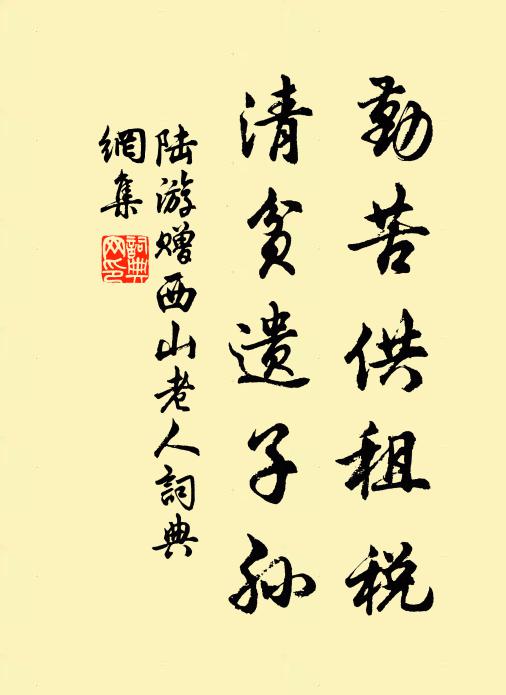 勤苦供租税
清貧遗子孙
陆游赠西山老人詞典
網集
詞典
网印